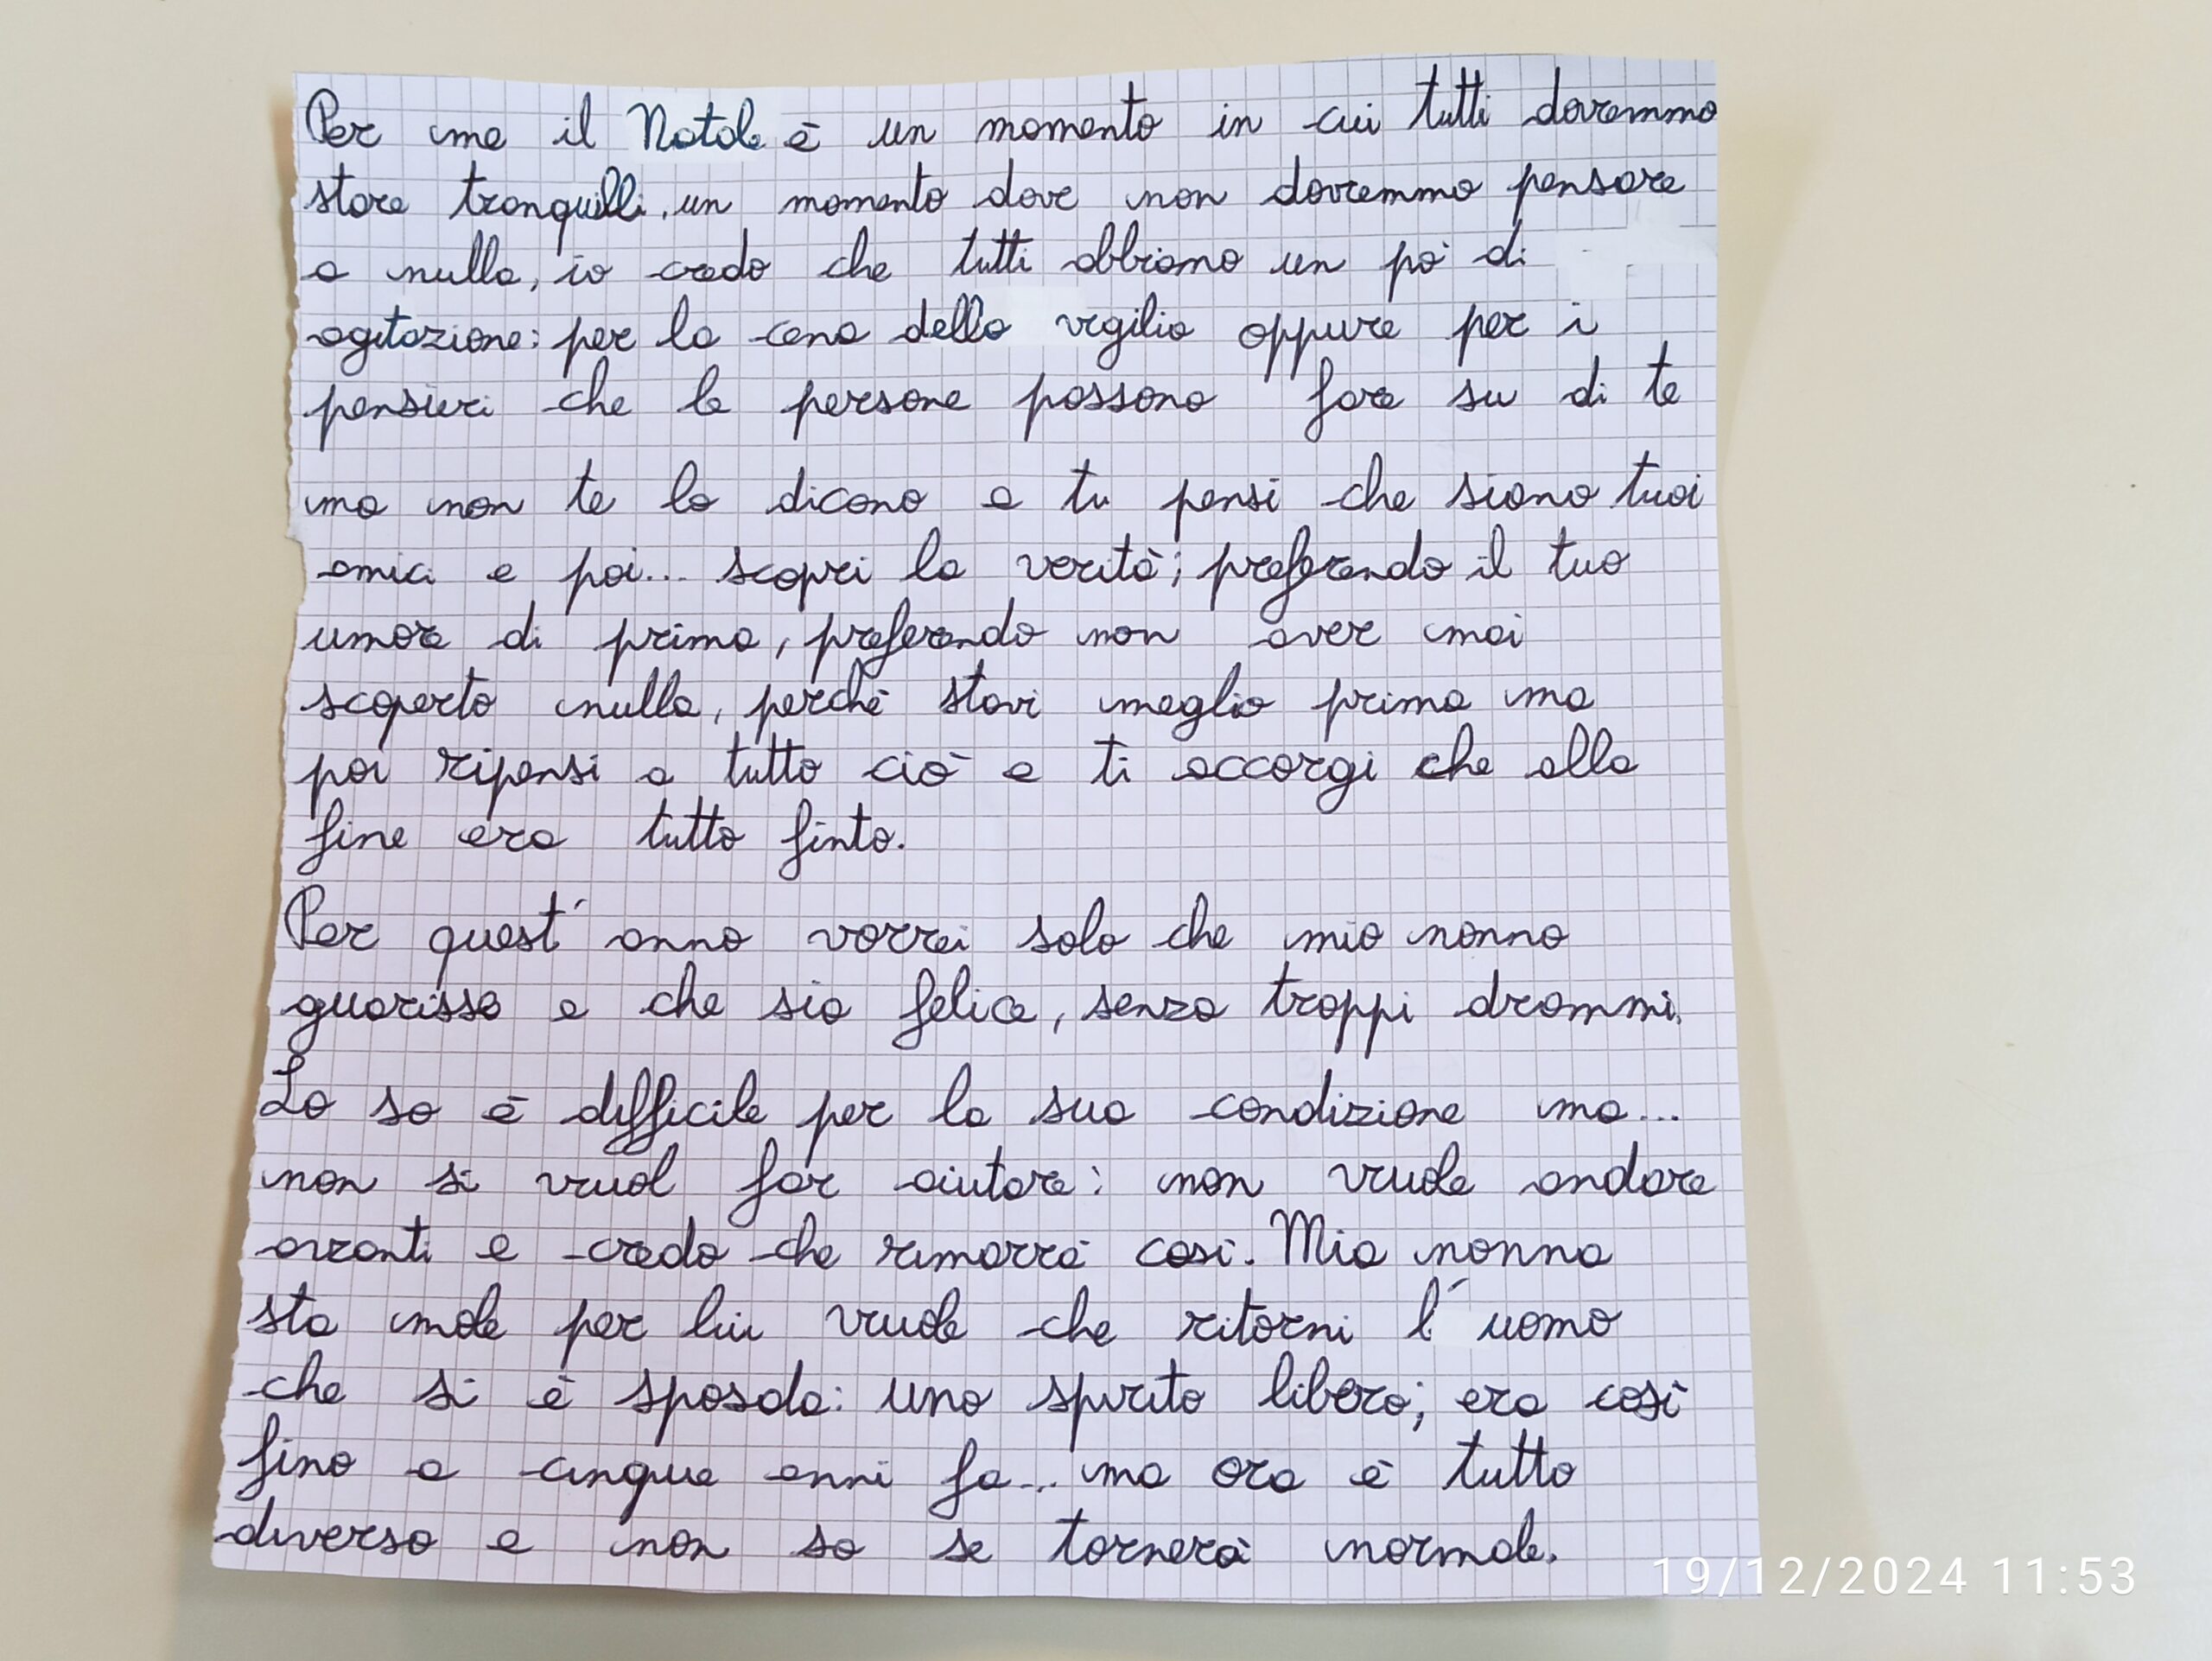 Per me il Natale è un momento in cui tutti dovremmo
stare tranquilli, un momento dove non dovremmo pensare
a nulla, io credo che tutti abbiamo un pò di
agitazione: per la cena della vigilia oppure per i
pensieri che le persone possono fare su di te
ma non te lo dicono e tu pensi che siano tuoi
amici e poi... scopri la verità; preferendo il tuo
umore di prima, preferendo non aver mai
scoperto nulla, perchè stavi meglio prima ma
poi ripensi a tutto ciò e ti accorgi che alla
fine era tutto finto.
Per quest'anno vorrei solo che mio nonno
guarisse e che sia felice, senza troppi drammi.
Lo so è difficile per la sua condizione ma...
non si vuol far aiutare: non vuole andare
avanti e credo che rimarrà così. Mia nonna
sta male per lui vuole che ritorni l'uomo
che si è sposata: uno spirito libero; era così
fino a cinque anni fa... ma ora è tutto
diverso e non so se tornerà normale.
19/12/2024 11:53